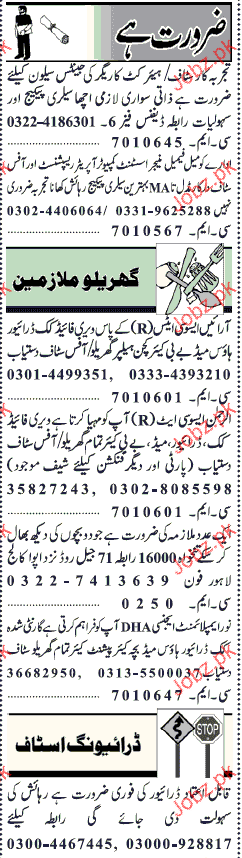 ضرورت ہے
تجربہ کار سٹاف/ہیئر کٹ کاریگر کی جینٹس سیلون کیلئے
ضرورت ہے ذاتی سواری لازمی اچھا سیلری پیکیج اور
سہولیات رابطہ ڈیفنس فیز 6۔ 0322-4186301
سی۔ایم۔ 7010645
ادارے کو میل فیمیل منیجر اسسٹنٹ کمپیوٹر آپریٹر ریسپشنسٹ اور آفس
سٹاف مڈل تا MA بہترین سیلری پیکیج رہائش کھانا تجربہ ضروری
نہیں 0331-9625288 /0302-4406064
سی۔ایم۔ 7010567
گھریلو ملازمین
آرائیں ایسوسی ایٹس (R) کے پاس ویری فائیڈ کک ڈرائیور
ہاؤس میڈ بے بی کیئر کچن ہیلپر گھریلو/آفس سٹاف دستیاب
0301-4499351, 0333-4393210
سی۔ایم۔ 7010601
ایسوسی ایٹ (R) آپ کو مہیا کرتا ہے ویری فائیڈ
کک، ڈرائیور، میڈ، بے بی کیئر تمام گھریلو/آفس سٹاف
دستیاب (پارٹی اور دیگر فنکشن کیلئے شیف موجود)
35827243, 0302-8085598
سی۔ایم۔ 7010601
ایک عدد ملازمہ کی ضرورت ہے جو دو بچوں کی دیکھ بھال
کر سکے تنخواہ 16000 رابطہ 71 جیل روڈ نزد اپوا کالج
لاہور فون 0322-7413639
سی۔ایم۔ 0250
نور ایمپلائمنٹ ایجنسی DHA آپ کو فراہم کرتی ہے گارنٹی شدہ
کک ڈرائیور ہاؤس میڈ بچہ کیئر پیشنٹ کیئر تمام گھریلو سٹاف
دستیاب 0313-5500037 ,36682950
سی۔ایم۔ 7010647
ڈرائیونگ اسٹاف
STOP
قابل اعتماد ڈرائیور کی فوری ضرورت ہے رہائش کی
سہولت دی جائے گی رابطہ کیلئے
0300-4467445, 03000-928817
Jobz.pk